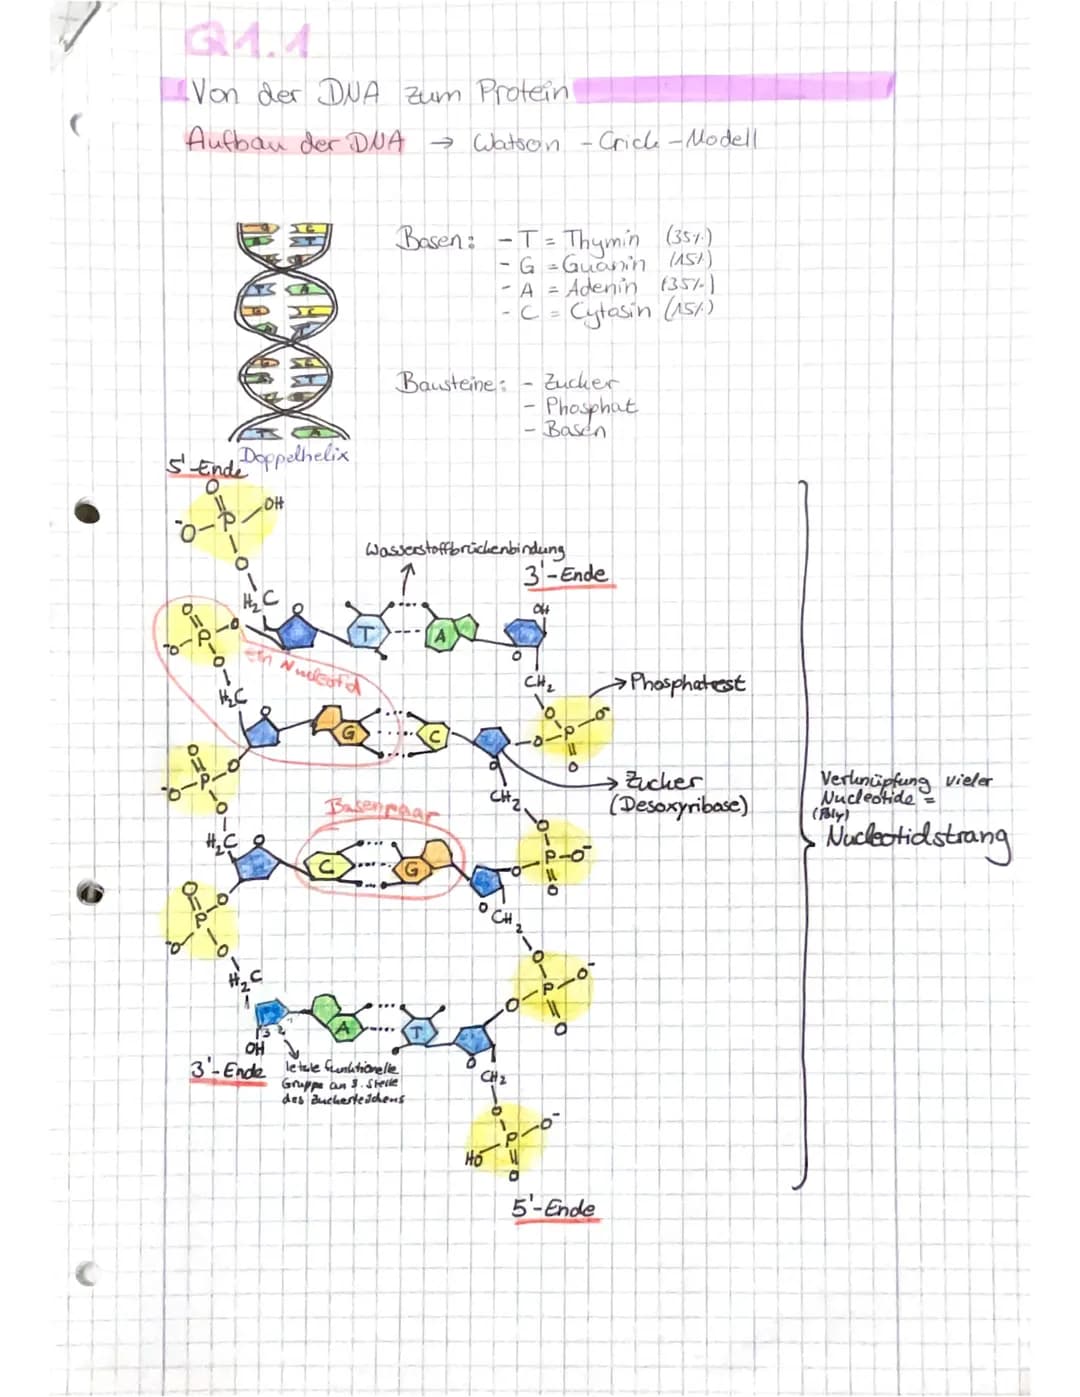 Q1.1
Von der DNA zum Protein
Aufbau der DNA → Watson - Crick - Modell
Basen: - T = Thymin (35%)
- G = Guanin (15%)
- A = Adenin (35%)
- C = Cytosin (15%)
Bausteine: - Zucker
- Phosphat
- Basen
Doppelhelix
5'-Ende
O
OH
⁻O
P
O
H₂C
Wasserstoffbrückenbindung
3'-Ende
OH
O
T
A
O
CH₂
O
P
O
⁻O
O
Ein Nucleotid
H₂C
→ Phosphatrest
O
G
C
O
O
P
O⁻
O
O
→ Zucker
(Desoxyribose)
CH₂
O
P
O
⁻O
O
H₂C
Basenpaar
Verknüpfung vieler
Nucleotide =
(Poly)
Nucleotidstrang
O
C
G
O
O
P-O⁻
O
O
CH₂
O
P
O
⁻O
O
H₂C
O
P
O⁻
O
O
A
T
O
3
2
OH
3'-Ende
letzte funktionelle
Gruppe an 3. Stelle
des Zuckerteilchens
CH₂
O
P
O⁻
HO
O
5'-Ende